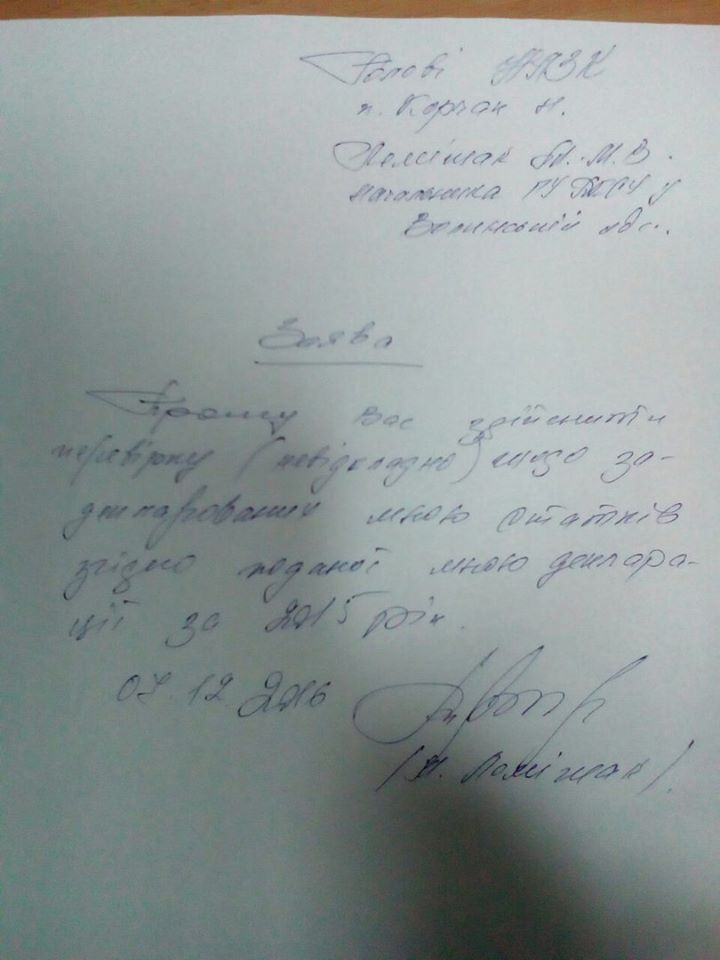 Голові НАЗК
п. Корчак Н.
Поліщак М.В.
начальника ГУ у
Волинській обл.
Заява
Прошу Вас здійснити
перевірку (невідкладно) щодо за-
декларованих мною статків
згідно поданої мною деклара-
ції за 2015 рік.
07.12.2016